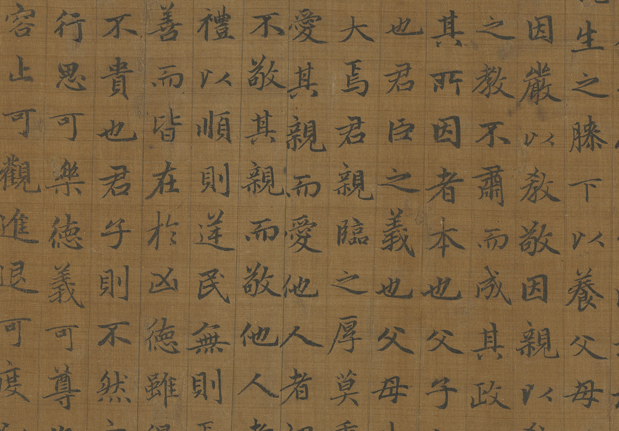 生之膝下以養父母
因嚴以教敬因親以
之教不肅而成其政
其所因者本也父子
也君臣之義也父母
大焉君親臨之厚莫
愛其親而愛他人者
不敬其親而敬他人
禮以順則逆民無則
善而皆在於凶徳雖
不貴也君子則不然
行思可樂徳義可尊
容止可觀進退可度